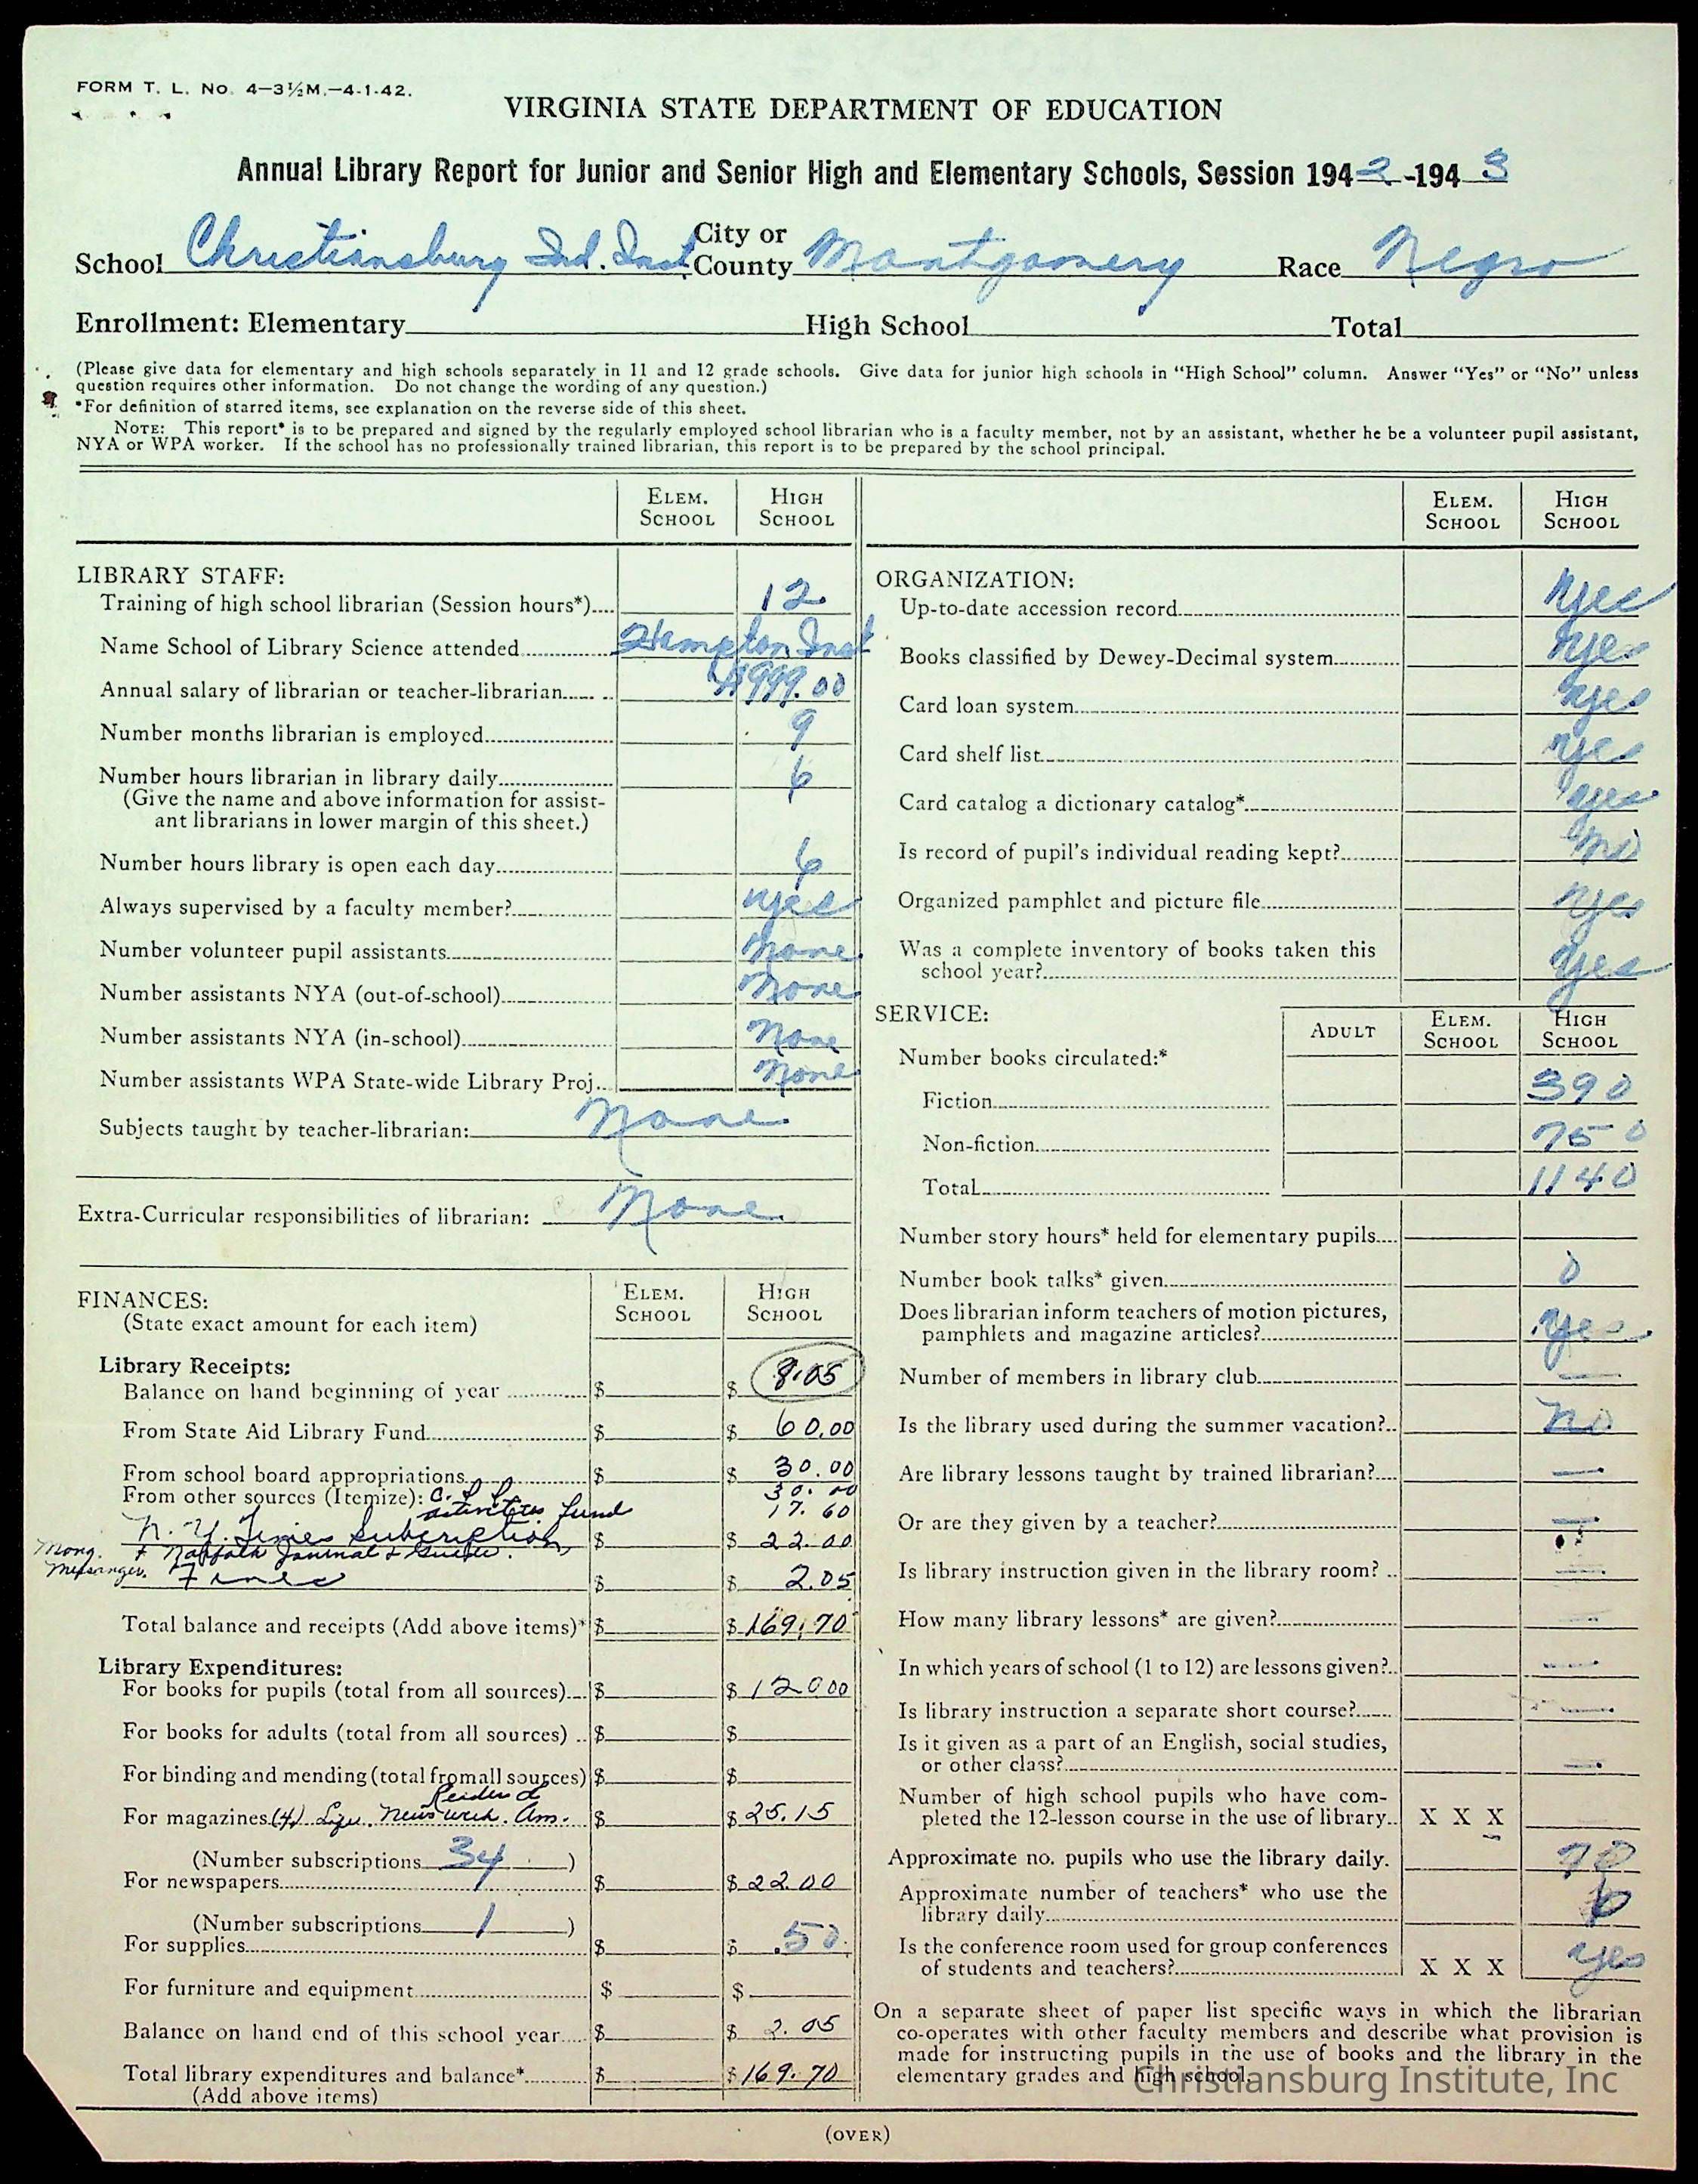 FORM T. L. No. 4—3½M.—4-1-42.
VIRGINIA STATE DEPARTMENT OF EDUCATION
Annual Library Report for Junior and Senior High and Elementary Schools, Session 194 2 -194 3
School Christiansburg Ind. Inst. City or County Montgomery Race Negro
Enrollment: Elementary High School Total
(Please give data for elementary and high schools separately in 11 and 12 grade schools. Give data for junior high schools in “High School” column. Answer “Yes” or “No” unless
question requires other information. Do not change the wording of any question.)
*For definition of starred items, see explanation on the reverse side of this sheet.
NOTE: This report* is to be prepared and signed by the regularly employed school librarian who is a faculty member, not by an assistant, whether he be a volunteer pupil assistant,
NYA or WPA worker. If the school has no professionally trained librarian, this report is to be prepared by the school principal.
ELEM. SCHOOL HIGH SCHOOL
LIBRARY STAFF:
Training of high school librarian (Session hours*) 12
Name School of Library Science attended Hampton Inst
Annual salary of librarian or teacher-librarian $999.00
Number months librarian is employed 9
Number hours librarian in library daily 6
(Give the name and above information for assist-
ant librarians in lower margin of this sheet.)
Number hours library is open each day 6
Always supervised by a faculty member? yes
Number volunteer pupil assistants None
Number assistants NYA (out-of-school) None
Number assistants NYA (in-school) None
Number assistants WPA State-wide Library Proj. None
Subjects taught by teacher-librarian: None
Extra-Curricular responsibilities of librarian: None
FINANCES: ELEM. SCHOOL HIGH SCHOOL
(State exact amount for each item)
Library Receipts:
Balance on hand beginning of year $ $ 8.05
From State Aid Library Fund $ $ 60.00
From school board appropriations $ $ 30.00
From other sources (Itemize): 30.00
activities fund 17.60
N. Y. Times subscription $ $ 22.00
& Norfolk Journal & Guide.
Fines $ $ 2.05
Total balance and receipts (Add above items)* $ $ 169.70
Library Expenditures:
For books for pupils (total from all sources) $ $ 120.00
For books for adults (total from all sources) $ $
For binding and mending (total from all sources) $ $
For magazines (4) Life. Newsweek. Am. $ $ 25.15
(Number subscriptions 34 )
For newspapers $ $ 22.00
(Number subscriptions 1 )
For supplies $ $ .50
For furniture and equipment $ $
Balance on hand end of this school year $ $ 2.05
Total library expenditures and balance* $ $ 169.70
(Add above items)
ELEM. SCHOOL HIGH SCHOOL
ORGANIZATION:
Up-to-date accession record yes
Books classified by Dewey-Decimal system yes
Card loan system yes
Card shelf list yes
Card catalog a dictionary catalog* yes
Is record of pupil's individual reading kept? no
Organized pamphlet and picture file yes
Was a complete inventory of books taken this
school year? yes
SERVICE: ADULT ELEM. SCHOOL HIGH SCHOOL
Number books circulated:*
Fiction 390
Non-fiction 750
Total 1140
Number story hours* held for elementary pupils
Number book talks* given 0
Does librarian inform teachers of motion pictures,
pamphlets and magazine articles? yes
Number of members in library club —
Is the library used during the summer vacation? no
Are library lessons taught by trained librarian? —
Or are they given by a teacher? —
Is library instruction given in the library room? —
How many library lessons* are given? —
In which years of school (1 to 12) are lessons given? —
Is library instruction a separate short course? —
Is it given as a part of an English, social studies,
or other class? —
Number of high school pupils who have com-
pleted the 12-lesson course in the use of library X X X
Approximate no. pupils who use the library daily. 70
Approximate number of teachers* who use the
library daily 6
Is the conference room used for group conferences
of students and teachers? X X X yes
On a separate sheet of paper list specific ways in which the librarian
co-operates with other faculty members and describe what provision is
made for instructing pupils in the use of books and the library in the
elementary grades and high school.
Christiansburg Institute, Inc
(OVER)